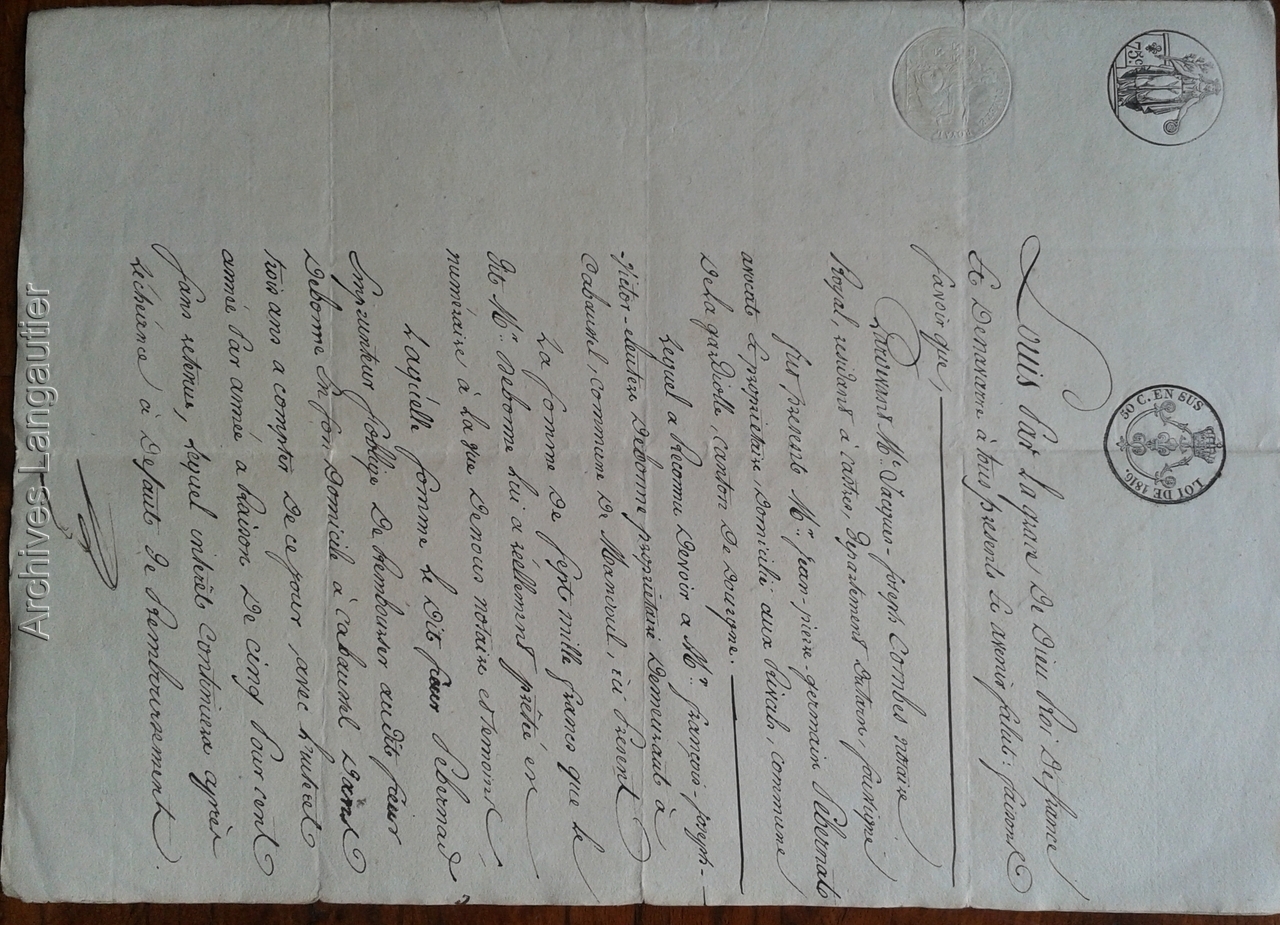 75 c.
50 C. EN SUS
LOI DE 1816.
Louis Par La grace De Dieu Roi De france
Et De navarre à tous presents Et avenir salut: faisons
savoir que,
Pardevant Mr. Jacques-joseph Combes notaire
Royal, residant à castres, Departement Dutarn, soussigné
fut present Mr. jean-pierre-germain
avocat Et proprietaire, Domicilié aux, commune
De La gardiolle, canton De Dourgne.
Lequel a Reconnu Devoir a Mr. françois-joseph-
victor-eleuter Debonne proprietaire Demeurant à
Cabaunel, commune De, ici Present
La somme De sept mille francs que le
dit Mr. Debonne lui a réellement prêtée en
numéraire à La vue De nous notaire et temoins,
Laquelle somme le Dit sieur
Emprunteur s'oblige De Rembourser audit sieur
Debonne En son Domicile à Cabaunel Dans
trois ans a compter De ce jour avec Interet
année Par année a Raison De cinq Pour cent
sans retenue, lequel intérêt Continuera après
L'échéance à Defaut De Remboursement.
Archives Langautier